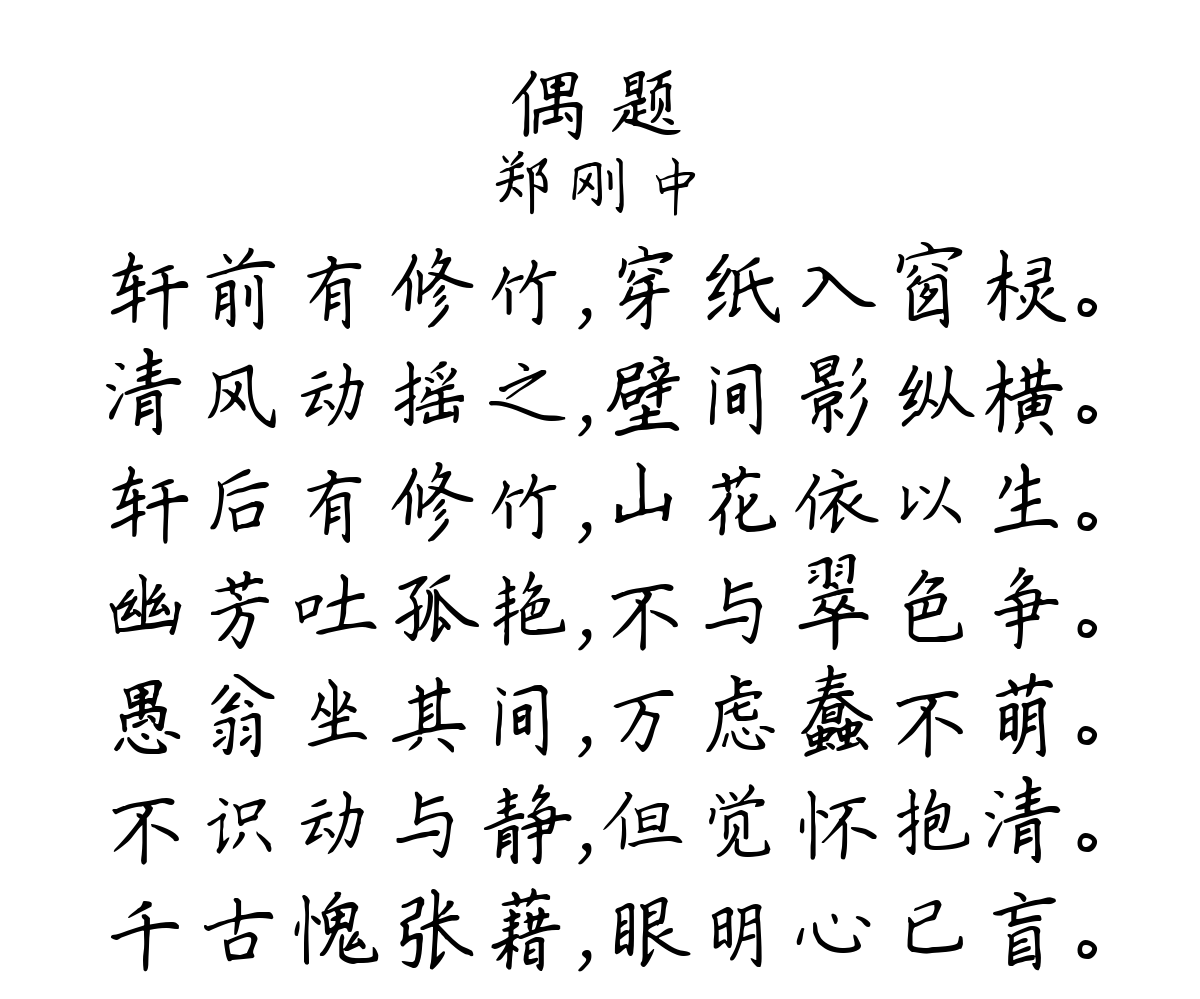 偶题
郑刚中
轩前有修竹,穿纸入窗棂。
清风动摇之,壁间影纵横。
轩后有修竹,山花依以生。
幽芳吐孤艳,不与翠色争。
愚翁坐其间,万虑蠢不萌。
不识动与静,但觉怀抱清。
千古愧张藉,眼明心已盲。